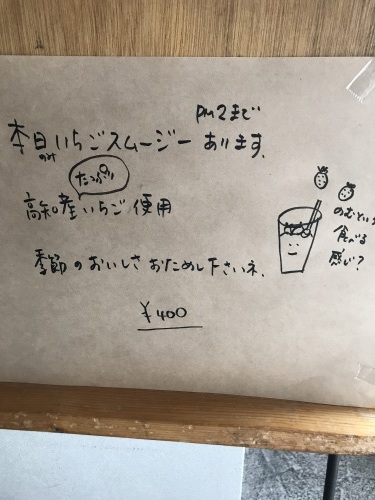 PM2まで
本日のみいちごスムージーあります。
たっぷり
高知産いちご使用
季節のおいしさおためし下さいネ。
¥400
のむという
食べる
感じ?